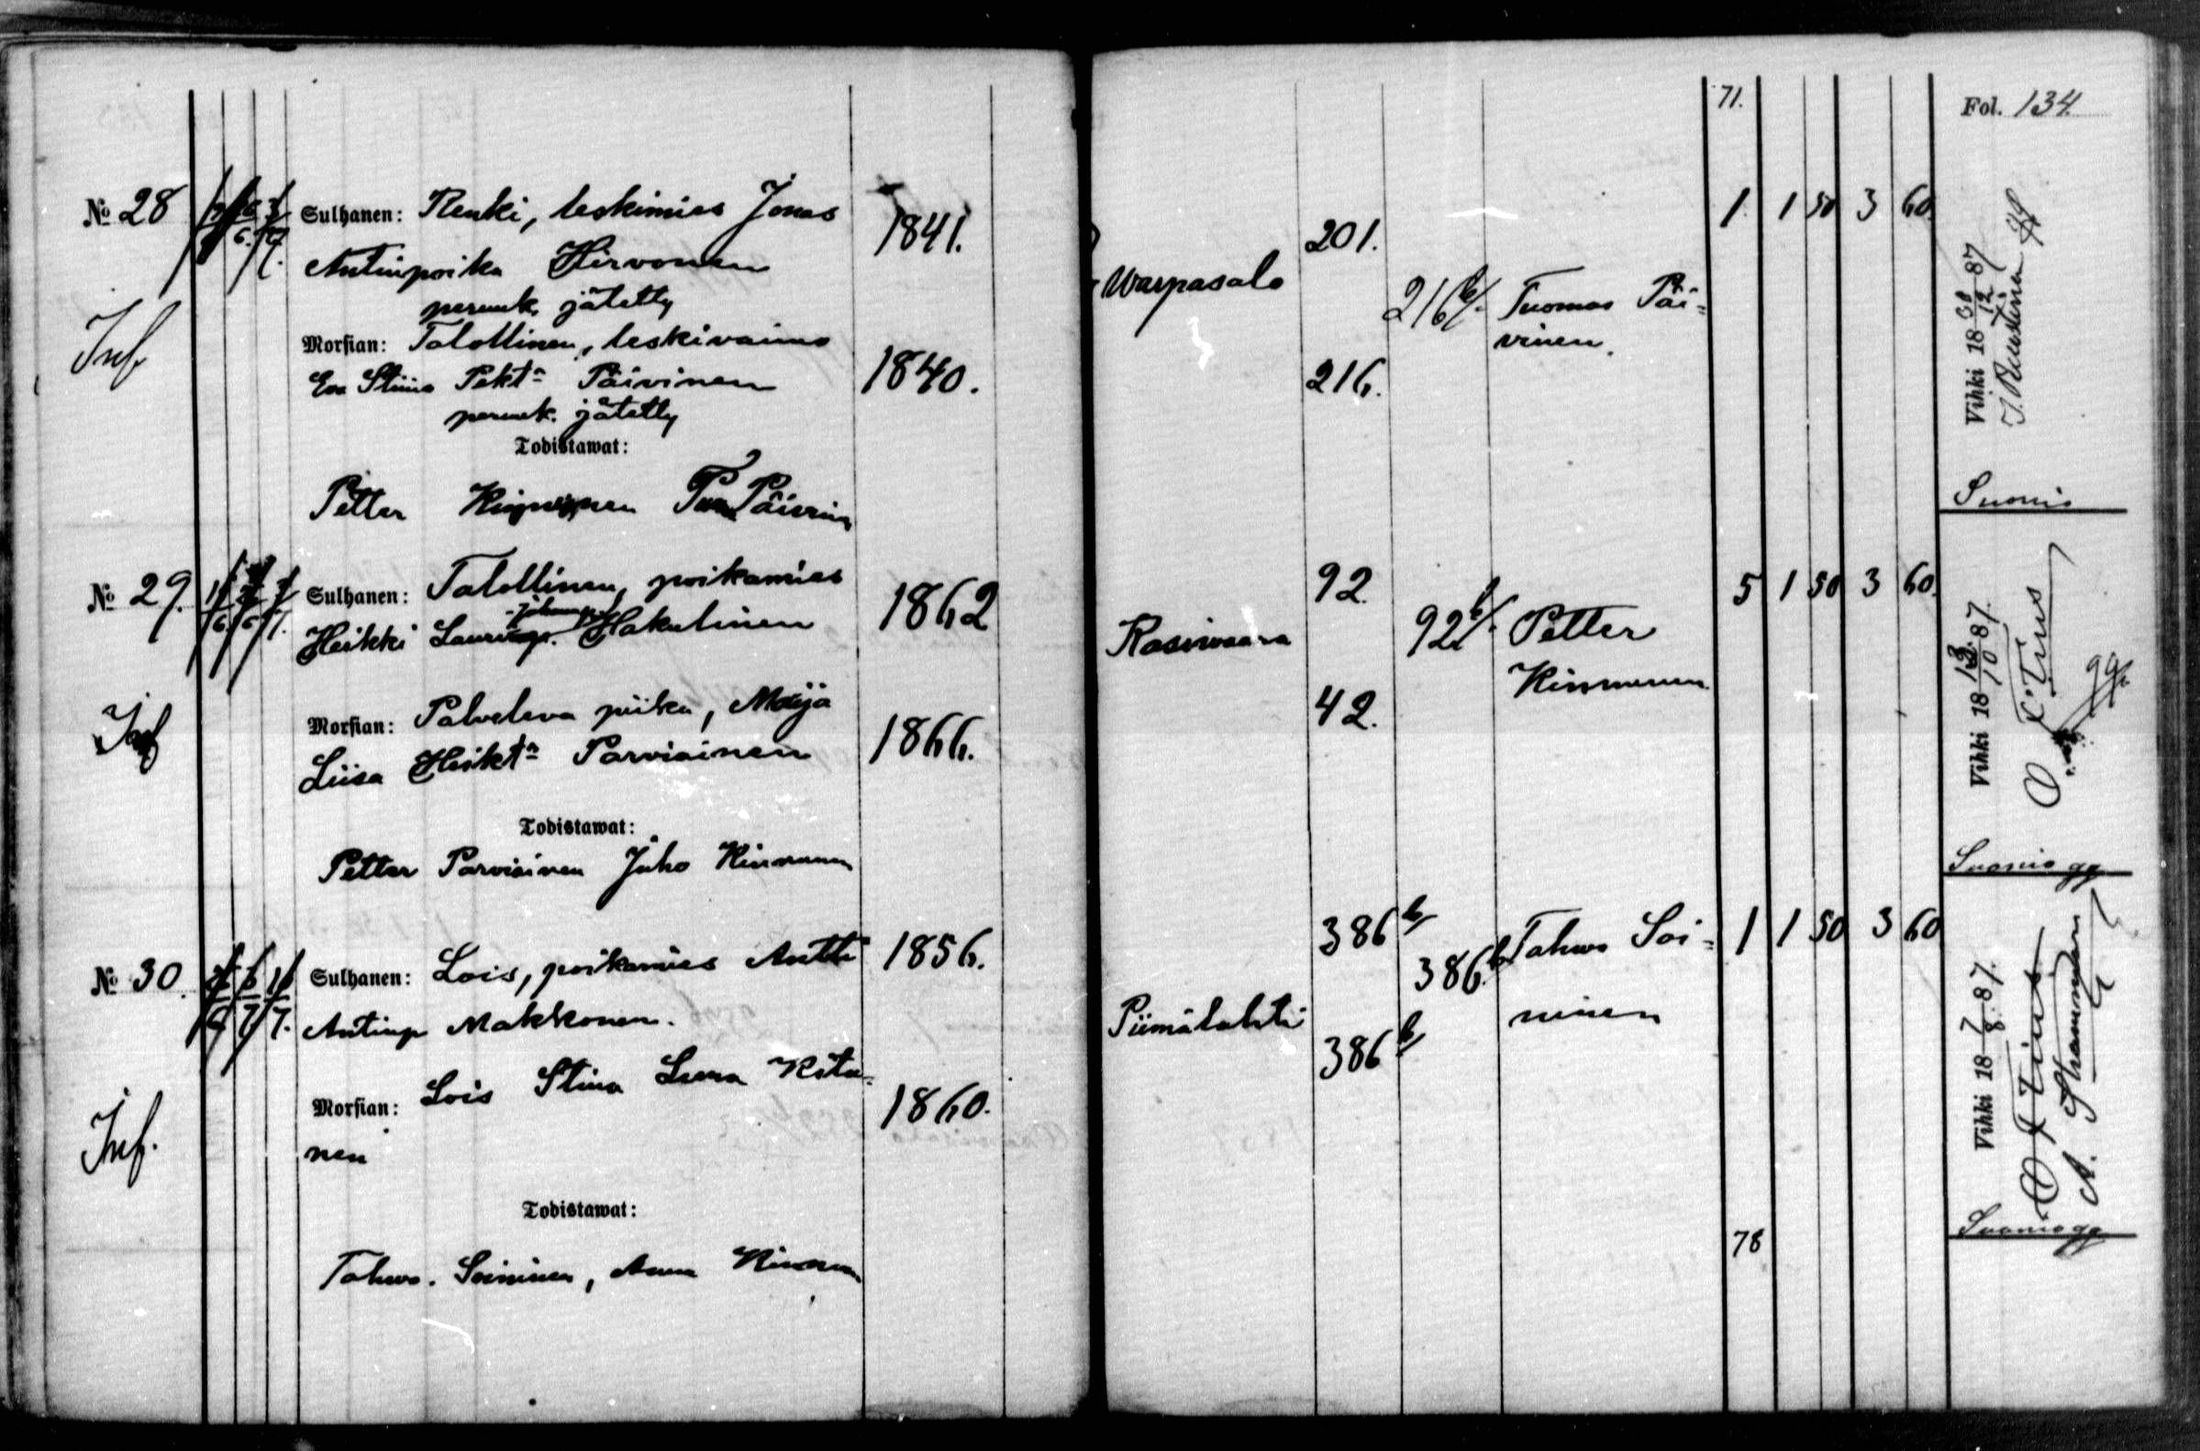 71.
Fol. 134.
№ 28
Sulhanen: Renki, leskimies Jonas
Antinpoika Hirvonen
perunk. jätetty
1841.
Inf.
Morsian: Talollinen, leskivaimo
Eva Stiina Pekt:n Päivinen
perunk. jätetty
1840.
Todistawat:
Petter Päivinen
Warpasalo
201.
216.
216 b/. Tuomas Päi-
vinen.
1. 1 50 3 60.
Vihki 18 87
Suonio
№ 29.
Sulhanen: Talollinen, poikamies
Heikki Hakulinen
1862
Inf
Morsian: Palveleva piika, Maija
Liisa Heikt:n Parviainen
1866.
Todistawat:
Petter Parviainen Juho Kinnunen
Rasivaara
92.
42.
92 b/. Petter
Kinnunen.
5 1 50 3 60.
Vihki 18 10 87.
Suonio gg
№ 30.
Sulhanen: Lois, poikamies Antti
Antinp Makkonen.
1856.
Inf.
Morsian: Lois Stina Leena Kita-
nen
1860.
Todistawat:
Tahwo. Soininen, Anna Kinnunen
Piimälahti
386 b/
386 b/
386 b. Tahwo Soi-
ninen
1 1 50 3 60
78
Vihki 18 7/8 87.
Suonio gg